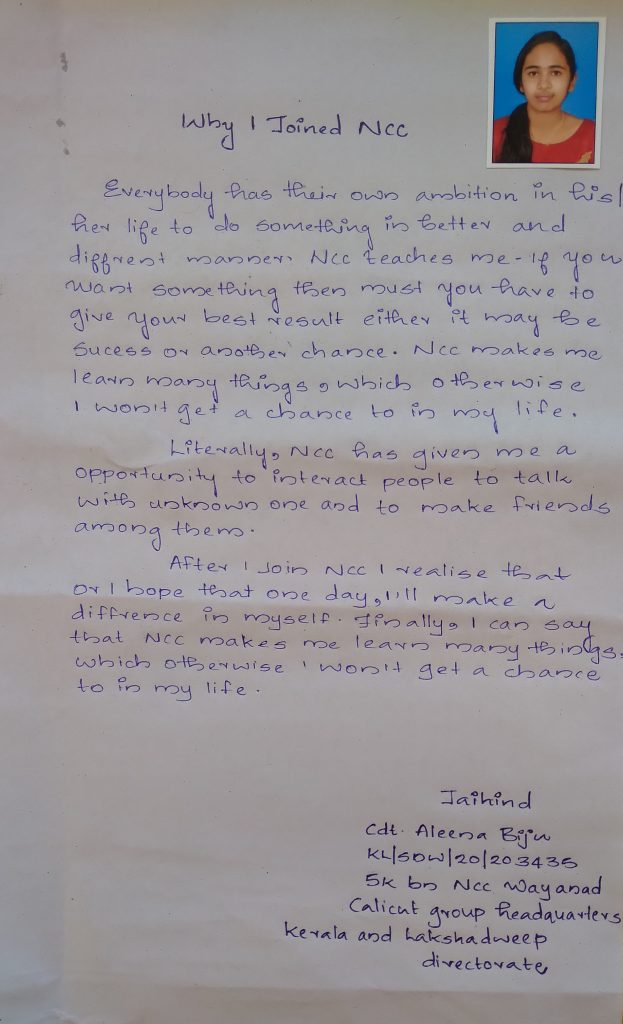 Why I Joined NCC
Everybody has their own ambition in his/
her life to do something in better and
diffrent manner. NCC teaches me - If you
want something then must you have to
give your best result either it may be
sucess or another chance. NCC makes me
learn many things, which otherwise
I won't get a chance to in my life.
Literally, NCC has given me a
opportunity to interact people to talk
with unknown one and to make friends
among them.
After I join NCC I realise that
or I hope that one day, I'll make a
diffrence in myself. Finally, I can say
that NCC makes me learn many things,
which otherwise I won't get a chance
to in my life.
Jaihind
Cdt. Aleena Biju
KL/SDW/20/203435
5K bn NCC Wayanad
Calicut group headquarters
Kerala and Lakshadweep
directorate